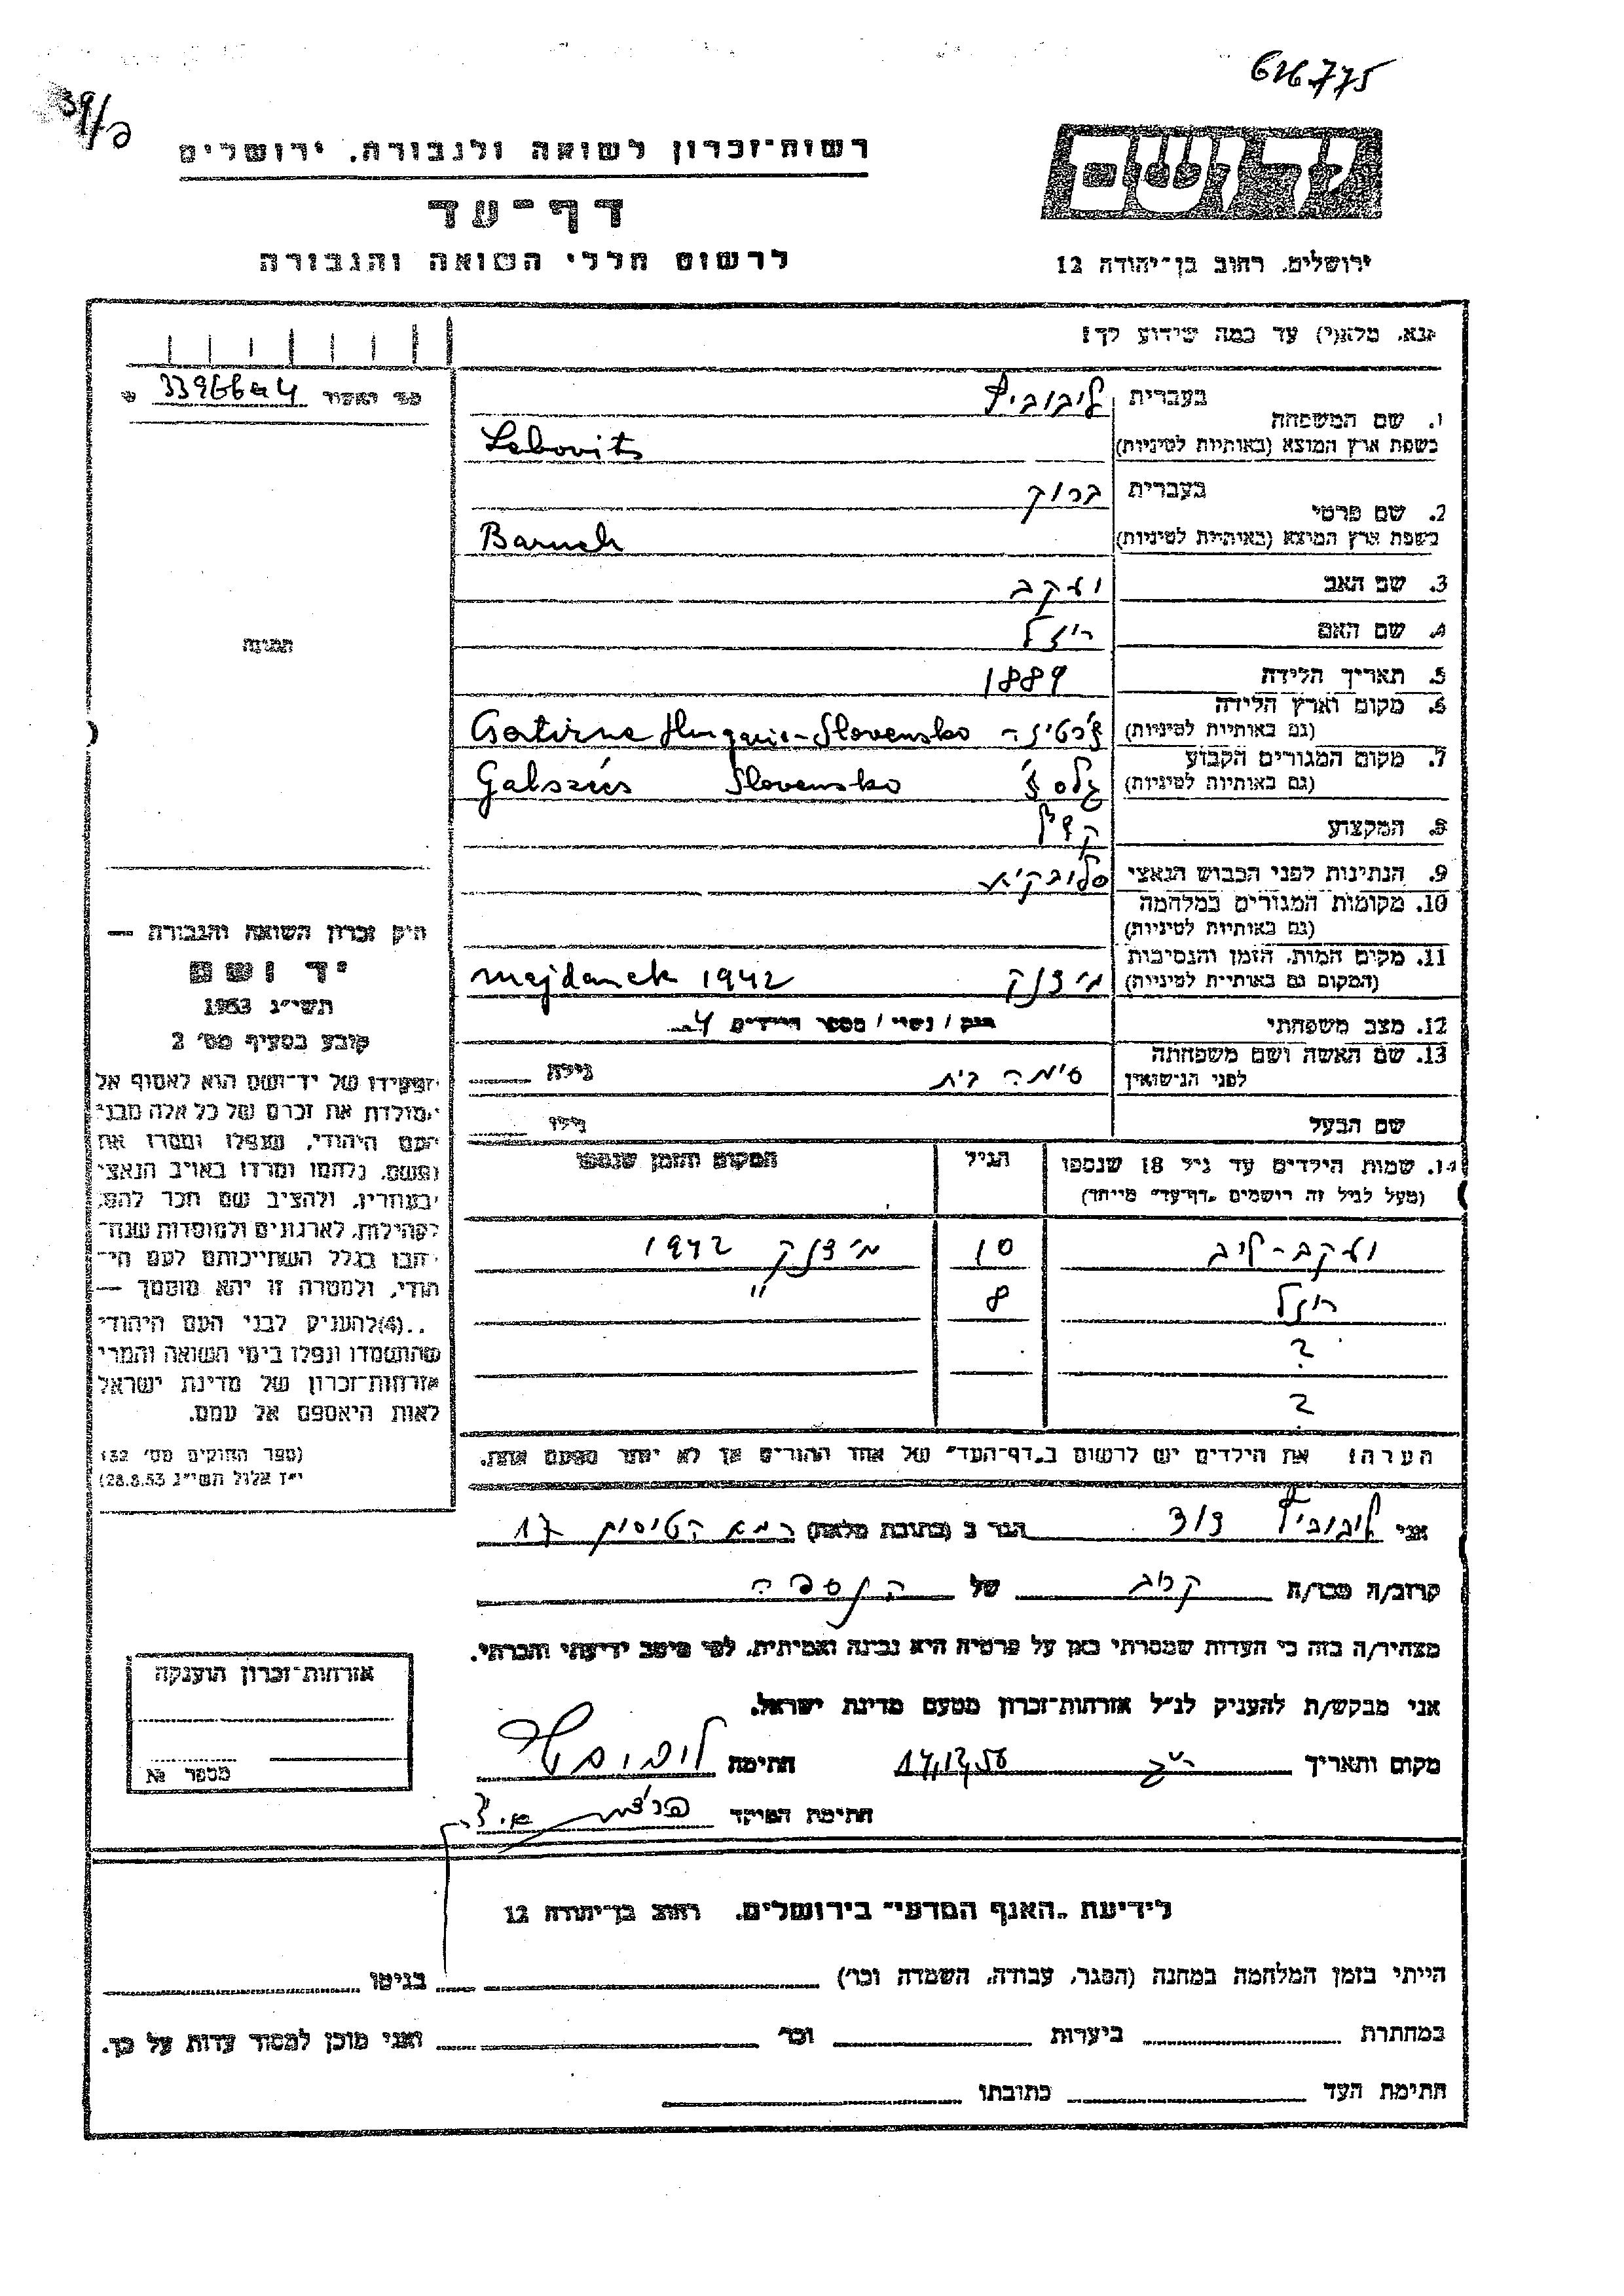 626775
39/כ
רשות־זכרון לשואה ולגבורה, ירושלים
דף־עד
לרשום חללי השואה והגבורה
ירושלים, רחוב בן־יהודה 12
נא, מלא(י) עד כמה שידוע לך!
1. שם המשפחה
בעברית ליבוביץ
בשפת ארץ המוצא (באותיות לטיניות) Lebovits
2. שם פרטי
בעברית ברוך
בשפת ארץ המוצא (באותיות לטיניות) Baruch
3. שם האב יעקב
4. שם האם רייזל
5. תאריך הלידה 1889
6. מקום וארץ הלידה
(גם באותיות לטיניות) Hungarie-Slovensko
7. מקום המגורים הקבוע
(גם באותיות לטיניות) Galszécs Slovensko
8. המקצוע
9. הנתינות לפני הכבוש הנאצי סלובקית
10. מקומות המגורים במלחמה
(גם באותיות לטיניות)
11. מקום המות, הזמן והנסיבות
(המקום גם באותיות לטיניות) מיידנק majdanek 1942
12. מצב משפחתי רוק / נשוי / מספר הילדים 4
13. שם האשה ושם משפחתה
לפני הנישואין סימה בית גילה
שם הבעל גילו
14. שמות הילדים עד גיל 18 שנספו הגיל המקום והזמן שנספו
(מעל לגיל זה רושמים „דף־עד” מיוחד)
יעקב-לייב 10 מיידנק 1942
רייזל 8 "
?
?
הערה: את הילדים יש לרשום ב„דף־העד” של אחד ההורים אך לא יותר מפעם אחת.
תמונה
חוק זכרון השואה והגבורה —
יד ושם
תשי״ג 1953
קובע בסעיף מס׳ 2
תפקידו של יד־ושם הוא לאסוף אל
המולדת את זכרם של כל אלה מבני
העם היהודי, שנפלו ומסרו את
נפשם, נלחמו ומרדו באויב הנאצי
ובעוזריו, ולהציב שם וזכר להם,
לקהילות, לארגונים ולמוסדות שנח־
רבו בגלל השתייכותם לעם הי־
הודי, ולמטרה זו יהא מוסמך —
..(4)להעניק לבני העם היהודי
שהושמדו ונפלו בימי השואה והמרי
אזרחות־זכרון של מדינת ישראל
לאות היאספם אל עמם.
(ספר החוקים מס׳ 132
י״ז אלול תשי״ג 28.8.53)
אני ליבוביץ דוד הגר ב (כתובת מלאה) רמת הטייסים 17
קרוב/ה מכר/ה קרוב של הנספה
מצהיר/ה בזה כי העדות שמסרתי כאן על פרטיה היא נכונה ואמיתית, לפי מיטב ידיעתי והכרתי.
אני מבקש/ת להעניק לנ״ל אזרחות־זכרון מטעם מדינת ישראל.
מקום ותאריך 17.12.56 חתימה ליבוביץ
חתימת הפוקד
אזרחות־זכרון הוענקה
מספר №
לידיעת „האגף המדעי” בירושלים, רחוב בן־יהודה 12
הייתי בזמן המלחמה במחנה (הסגר, עבודה, השמדה וכו׳) בגיטו
במחתרת ביערות וכו׳ ואני מוכן למסור עדות על כך.
חתימת העד כתובתו